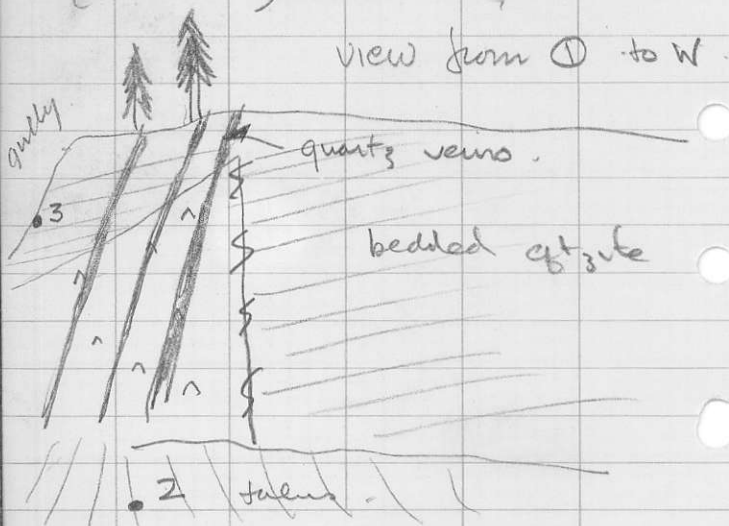 view from ① to W.
gully
quartz veins.
3
bedded qtzite
2
talus.